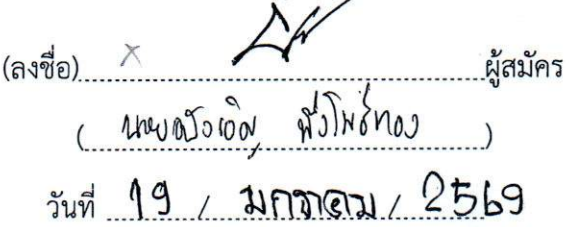 (ลงชื่อ) x ผู้สมัคร
( นายบังเอิญ พึ่งโพธิ์ทอง )
วันที่ 19 / มกราคม / 2569